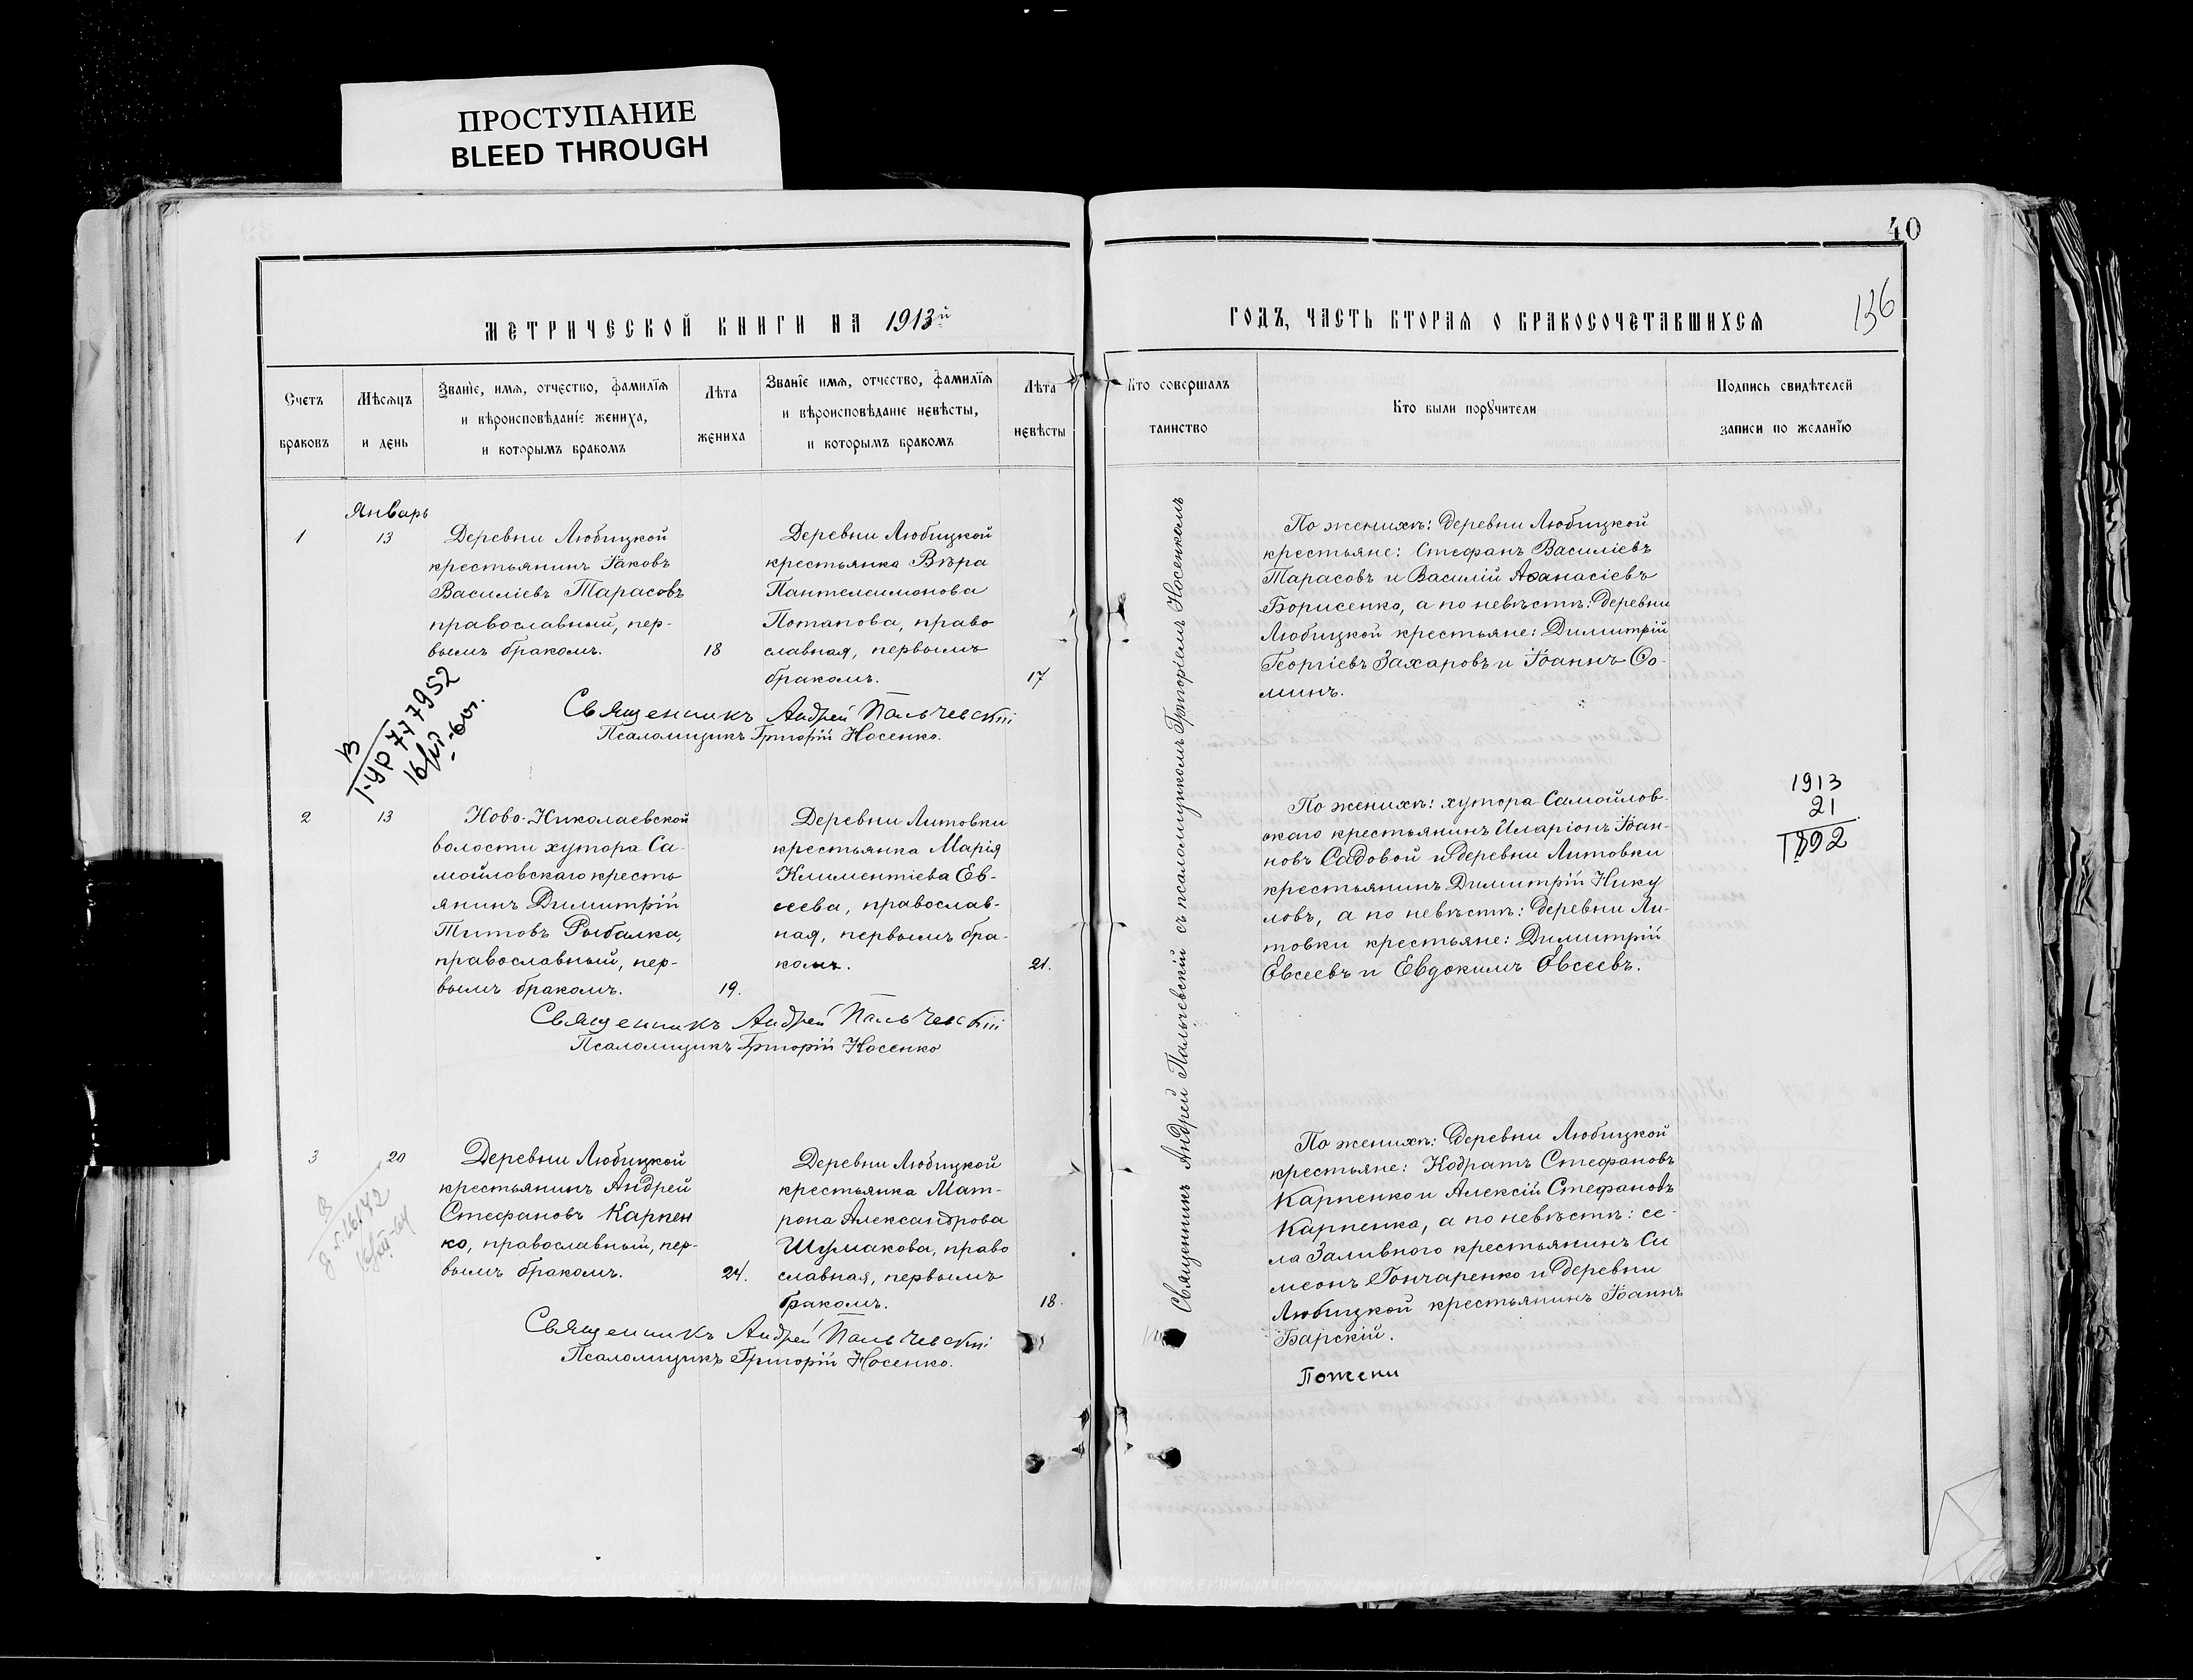 ПРОСТУПАНИЕ
BLEED THROUGH
40
136
МЕТРИЧЕСКОЙ КНИГИ НА 1913й
Счетъ
браковъ
Мѣсяцъ
и день
Званіе, имя, отчество, фамилія
и вѣроисповѣданіе жениха,
и которымъ бракомъ
Лѣта
жениха
Званіе имя, отчество, фамилія
и вѣроисповѣданіе невѣсты,
и которымъ бракомъ
Лѣта
невѣсты
Январь
1
13
Деревни Любицкой
крестьянинъ Іаковъ
Василіевъ Тарасовъ
православный, пер-
вымъ бракомъ.
18
Деревни Любицкой
крестьянка Вѣра
Пантелеимонова
Потапова, право
славная, первымъ
бракомъ.
17
Священникъ Андрей Пальчевскій
Псаломщикъ Григорій Носенко.
2
13
Ново-Николаевской
волости хутора Са-
мойловскаго кресть
янинъ Димитрій
Титовъ Рыбалка,
православный, пер-
вымъ бракомъ.
19.
Деревни Литовки
крестьянка Марія
Климентіева Ев-
сеева, православ-
ная, первымъ бра-
комъ.
21.
Священникъ Андрей Пальчевскій
Псаломщикъ Григорій Носенко
3
20
Деревни Любицкой
крестьянинъ Андрей
Стефановъ Карпен
ко, православный, пер-
вымъ бракомъ.
24.
Деревни Любицкой
крестьянка Мат-
рона Александрова
Шумакова, право
славная, первымъ
бракомъ.
18.
Священникъ Андрей Пальчевскій
Псаломщикъ Григорій Носенко.
ГОДЪ, ЧАСТЬ ВТОРАЯ О БРАКОСОЧЕТАВШИХСЯ
Кто совершалъ
таинство
Кто были поручители
Подпись свидѣтелей
записи по желанію
Священникъ Андрей Пальчевскій съ псаломщикомъ Григоріемъ Носенкомъ
По женихѣ: деревни Любицкой
крестьяне: Стефанъ Василіевъ
Тарасовъ и Василій Аѳанасіевъ
Борисенко, а по невѣстѣ: деревни
Любицкой крестьяне: Димитрій
Георгіевъ Захаровъ и Іоаннъ Ѳо-
минъ.
По женихѣ: хутора Самойлов-
скаго крестьянинъ Иларіонъ Іоан-
новъ Садовой и деревни Литовки
крестьянинъ Димитрій Нику
ловъ, а по невѣстѣ: деревни Ли-
товки крестьяне: Димитрій
Евсеевъ и Евдокимъ Евсеевъ.
1913
21
1892
По женихѣ: деревни Любицкой
крестьяне: Кодратъ Стефановъ
Карпенко и Алексій Стефановъ
Карпенко, а по невѣстѣ: се-
ла Заливного крестьянинъ Си
меонъ Гончаренко и деревни
Любицкой крестьянинъ Іоаннъ
Барскій.